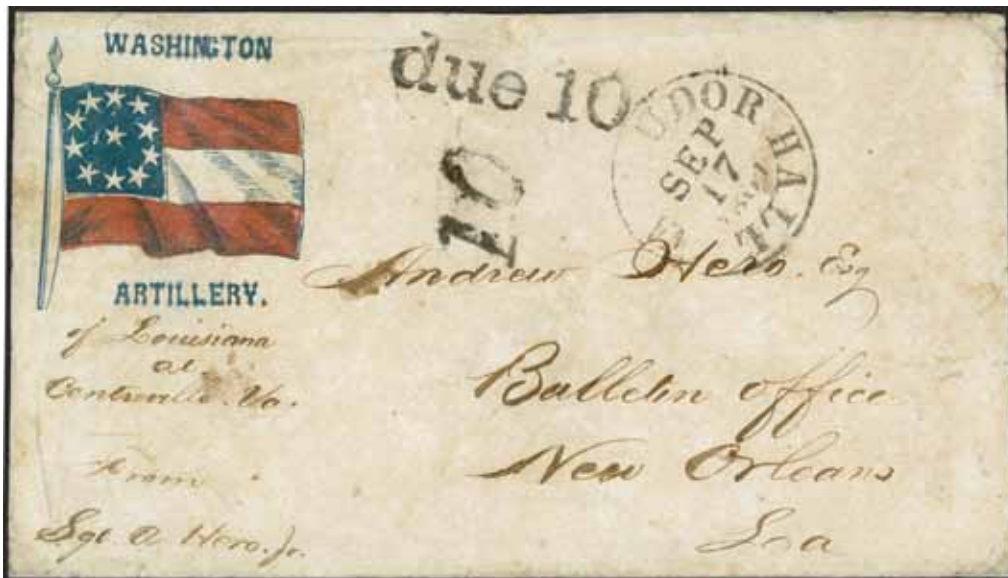 WASHINGTON
ARTILLERY.
of Louisiana
at.
Centreville. Va.
From
Sgt A Hero. Jr.
due 10
10
UDOR HALL
SEP
17
Andrew Hero. Esq
Bulletin office
New Orleans
Loa